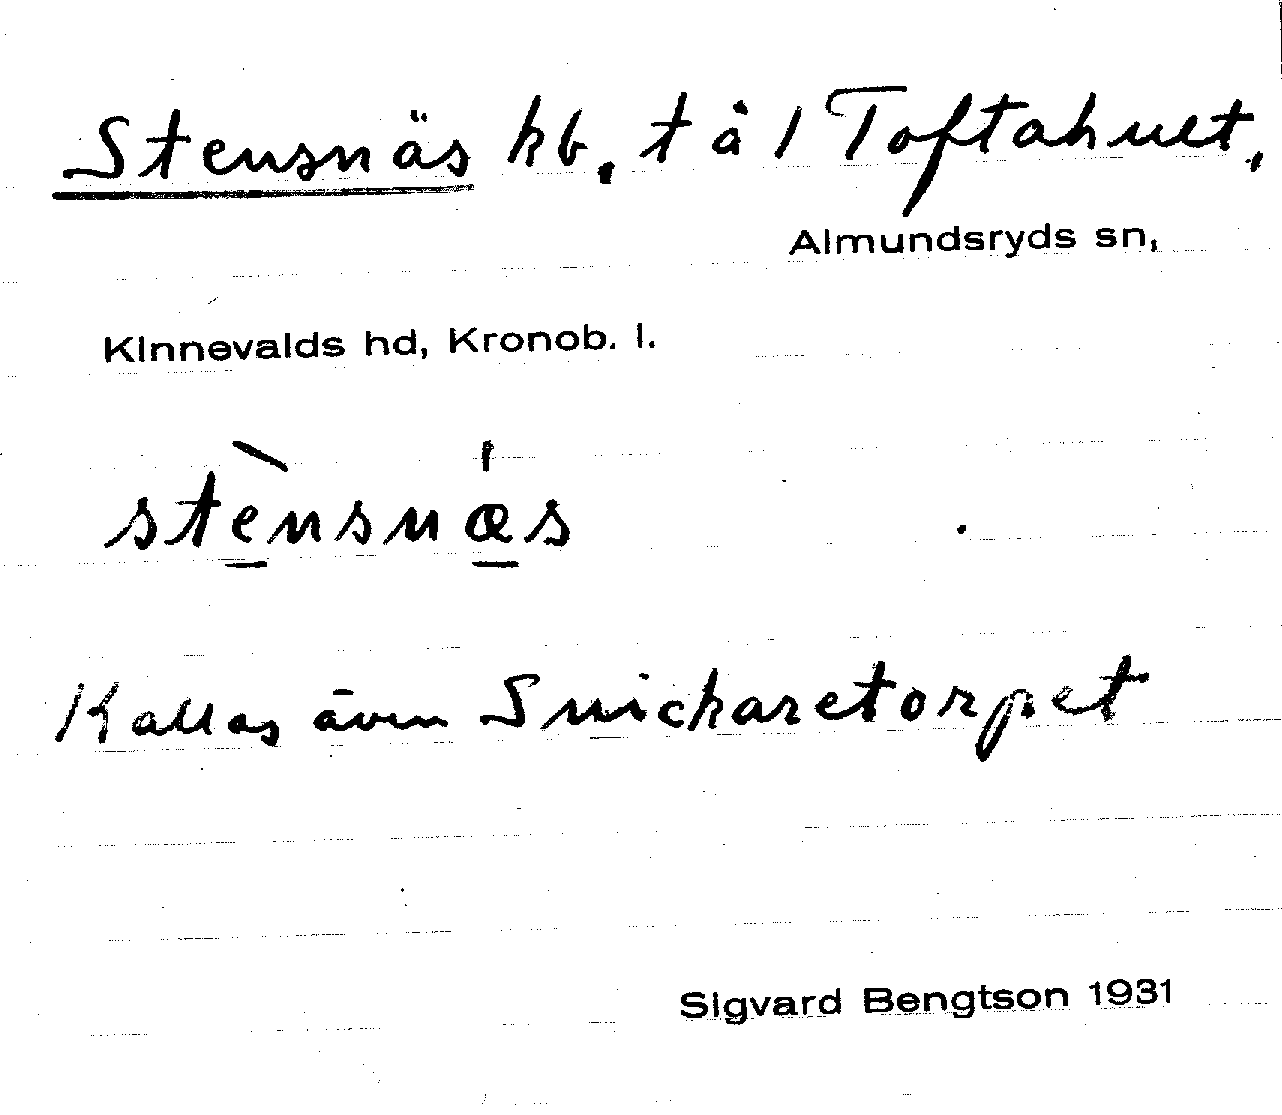 Stensnäs hb. t å 1 Toftahult,
Almundsryds sn,
Kinnevalds hd, Kronob. l.
stènsnæ̍s
Kallas även Snickaretorpet
Sigvard Bengtson 1931